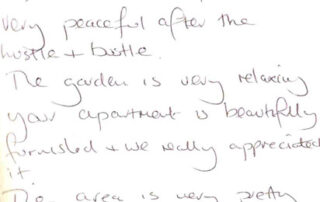 very peaceful after the
hustle + bustle.
The garden is very relaxing
your apartment is beautifully
furnished + we really appreciated
it.
The area is very pretty